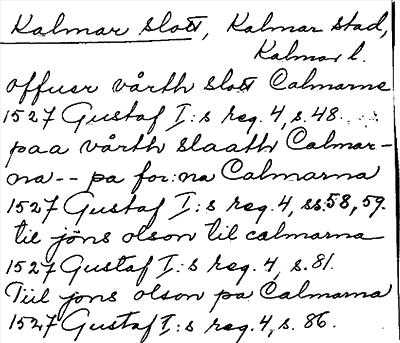 Kalmar slott, Kalmar stad,
Kalmar l.
offuer vårth slott Calmarne
1527 Gustaf I:s reg. 4, s. 48.
paa vårth slaath Calmar-
na -- pa for:na Calmarna
1527 Gustaf I:s reg. 4, ss. 58, 59.
til jöns olson til calmarna
1527 Gustaf I:s reg. 4, s. 81.
Tiil jons olson pa Calmarna
1527 Gustaf I:s reg. 4, s. 86.